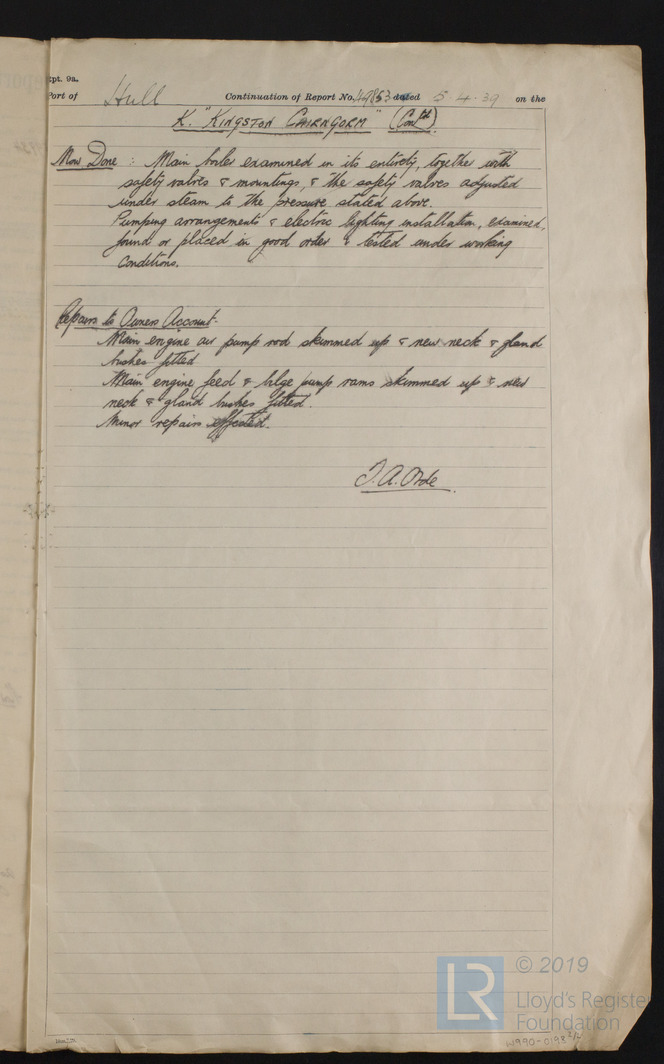 Rpt. 9a.
Port of Hull Continuation of Report No. 49853 dated 5.4.39 on the
K. "KINGSTON CAIRNGORM" (Contd).
Now Done : Main boiler examined in its entirety, together with
safety valves & mountings, & the safety valves adjusted
under steam to the pressure stated above.
Pumping arrangements & electric lighting installation, examined,
found or placed in good order & tested under working
conditions.
Repairs to Owners Account.
Main engine air pump rod skimmed up & new neck & gland
bushes fitted
Main engine feed & bilge pump rams skimmed up & new
neck & gland bushes fitted.
Minor repairs effected.
© 2019
LR
Lloyd's Register
Foundation
W990-0198 2/2